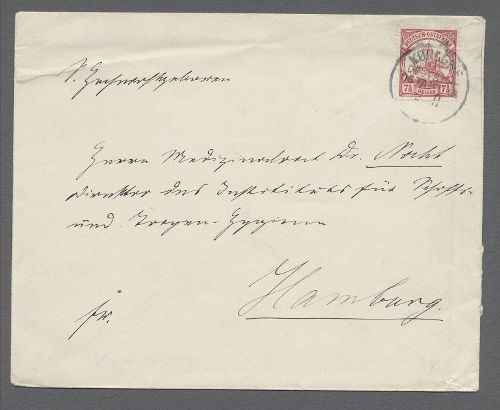 DEUTSCH-OSTAFRIKA
7½ HELLER 7½
S. Hochwohlgeboren
Herrn Medizinalrat Dr. Nocht
Direktor des Institutes für Schiffs-
und Tropen-Hygiene
Hamburg.
fr.